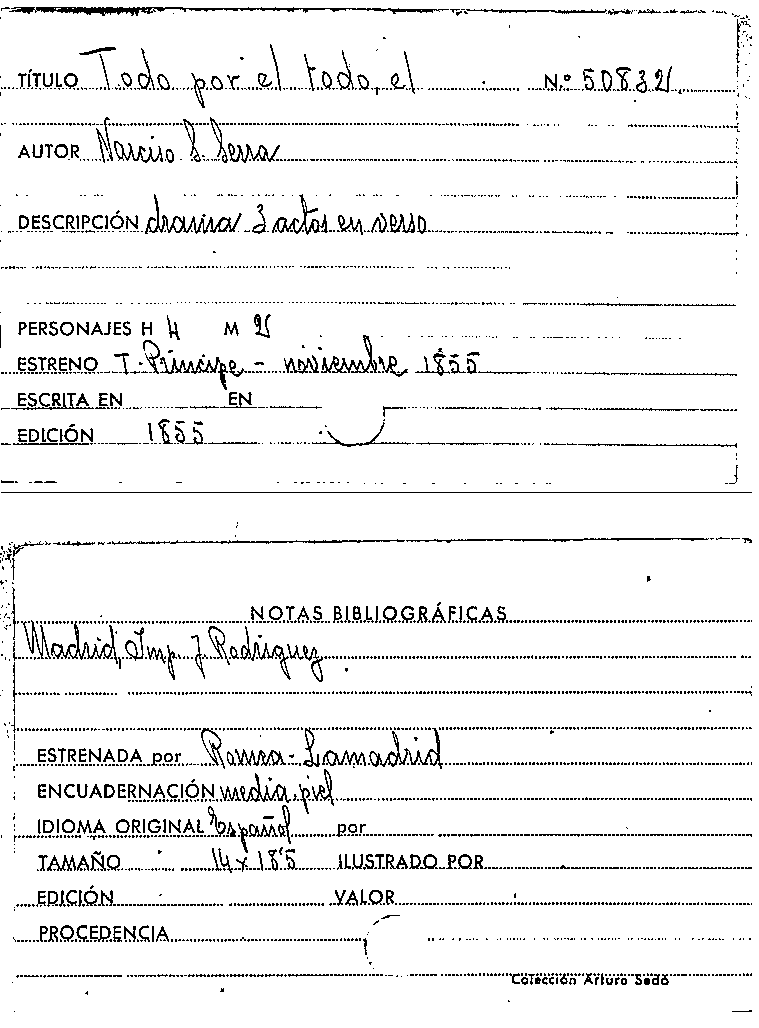 TÍTULO Todo por el todo, el N.º 50832
AUTOR Narciso S. Serra
DESCRIPCIÓN drama 3 actos en verso
PERSONAJES H 4 M 2
ESTRENO T. Príncipe - noviembre 1855
ESCRITA EN EN
EDICIÓN 1855
NOTAS BIBLIOGRÁFICAS
Madrid, Imp. J. Rodriguez
ESTRENADA por Ramea - Lamadrid
ENCUADERNACIÓN media piel
IDIOMA ORIGINAL Español por
TAMAÑO 14 x 18'5 ILUSTRADO POR
EDICIÓN VALOR
PROCEDENCIA
Colección Arturo Sedó